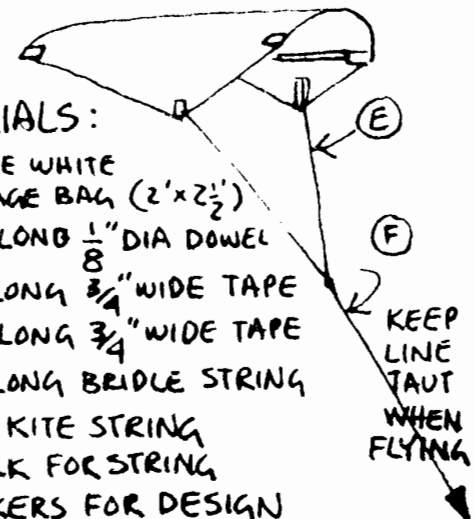 IALS:
E WHITE
AGE BAG (2' x 2½')
LONG ⅛" DIA DOWEL
LONG ¾" WIDE TAPE
LONG ¾" WIDE TAPE
LONG BRIDLE STRING
KITE STRING
LK FOR STRING
KERS FOR DESIGN
E
F
KEEP
LINE
TAUT
WHEN
FLYING